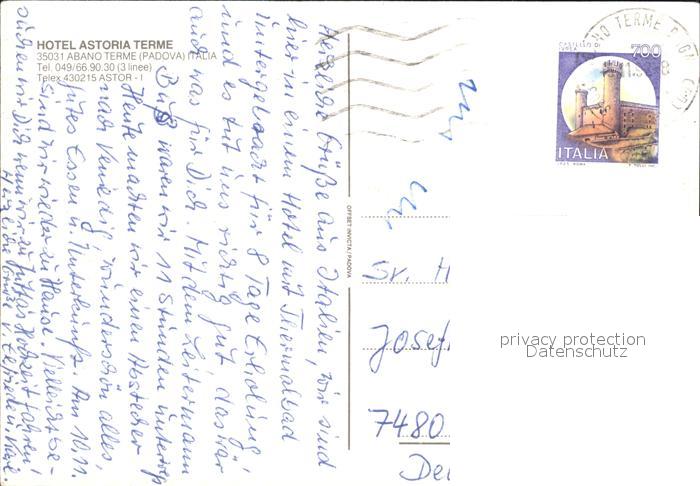 HOTEL ASTORIA TERME
35031 ABANO TERME (PADOVA) ITALIA
Tel. 049/66.90.30 (3 linee)
Telex 430215 ASTOR - I
Herzliche Grüße aus Italien, wir sind
hier in einem Hotel mit Thermalbad
untergebracht für 8 Tage Erholung,
und es tut uns richtig gut das wär
auch was für Dich. Mit dem Leitermann
Bus waren wir 11 Stunden unterwegs
Heute machten wir einen Abstecher
nach Venedig, wunderschön alles,
gutes Essen u. Unterkunft. Am 10.11.
sind wir wieder zu Hause. Vielleicht be-
suchen wir Dich wenn wir zu Juttas Hochzeit fahren!
Herzliche Grüße v.
OFFSET INVICTA/PADOVA
ABANO TERME
CASTELLO DI
IVREA
700
ITALIA
Sr. H
Josef
7480
De
privacy protection
Datenschutz